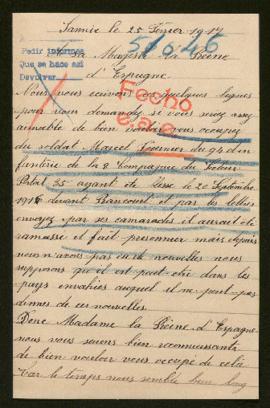 Samée le 25 Février 1917
51646
Pedir informes
Que se hace así
Devolver
A sa Majesté la Reine
d'Espagne
Fecho
Nous vous écrivons ces quelques lignes
pour vous demander si vous serez assez
aimable de bien vouloir vous occupez
du soldat Marcel Fournier du 94 d'in
fanterie de la 8 Compagnie du Secteur
Postal 35 ayant été blessé le 20 Septembre
1916 devant Rancourt et par les lettres
envoyez par ses camarades il aurait été
ramassé et fait prisonnier mais depuis
nous n'avons pas eu de nouvelles nous
supposons qu'il est peut être dans les
pays envahies auquel il ne peut pas
donner de ces nouvelles.
Donc Madame la Reine d'Espagne
nous vous serions bien reconnaissante
de bien vouloir vous occupé de celà
car le temps nous semble bien long